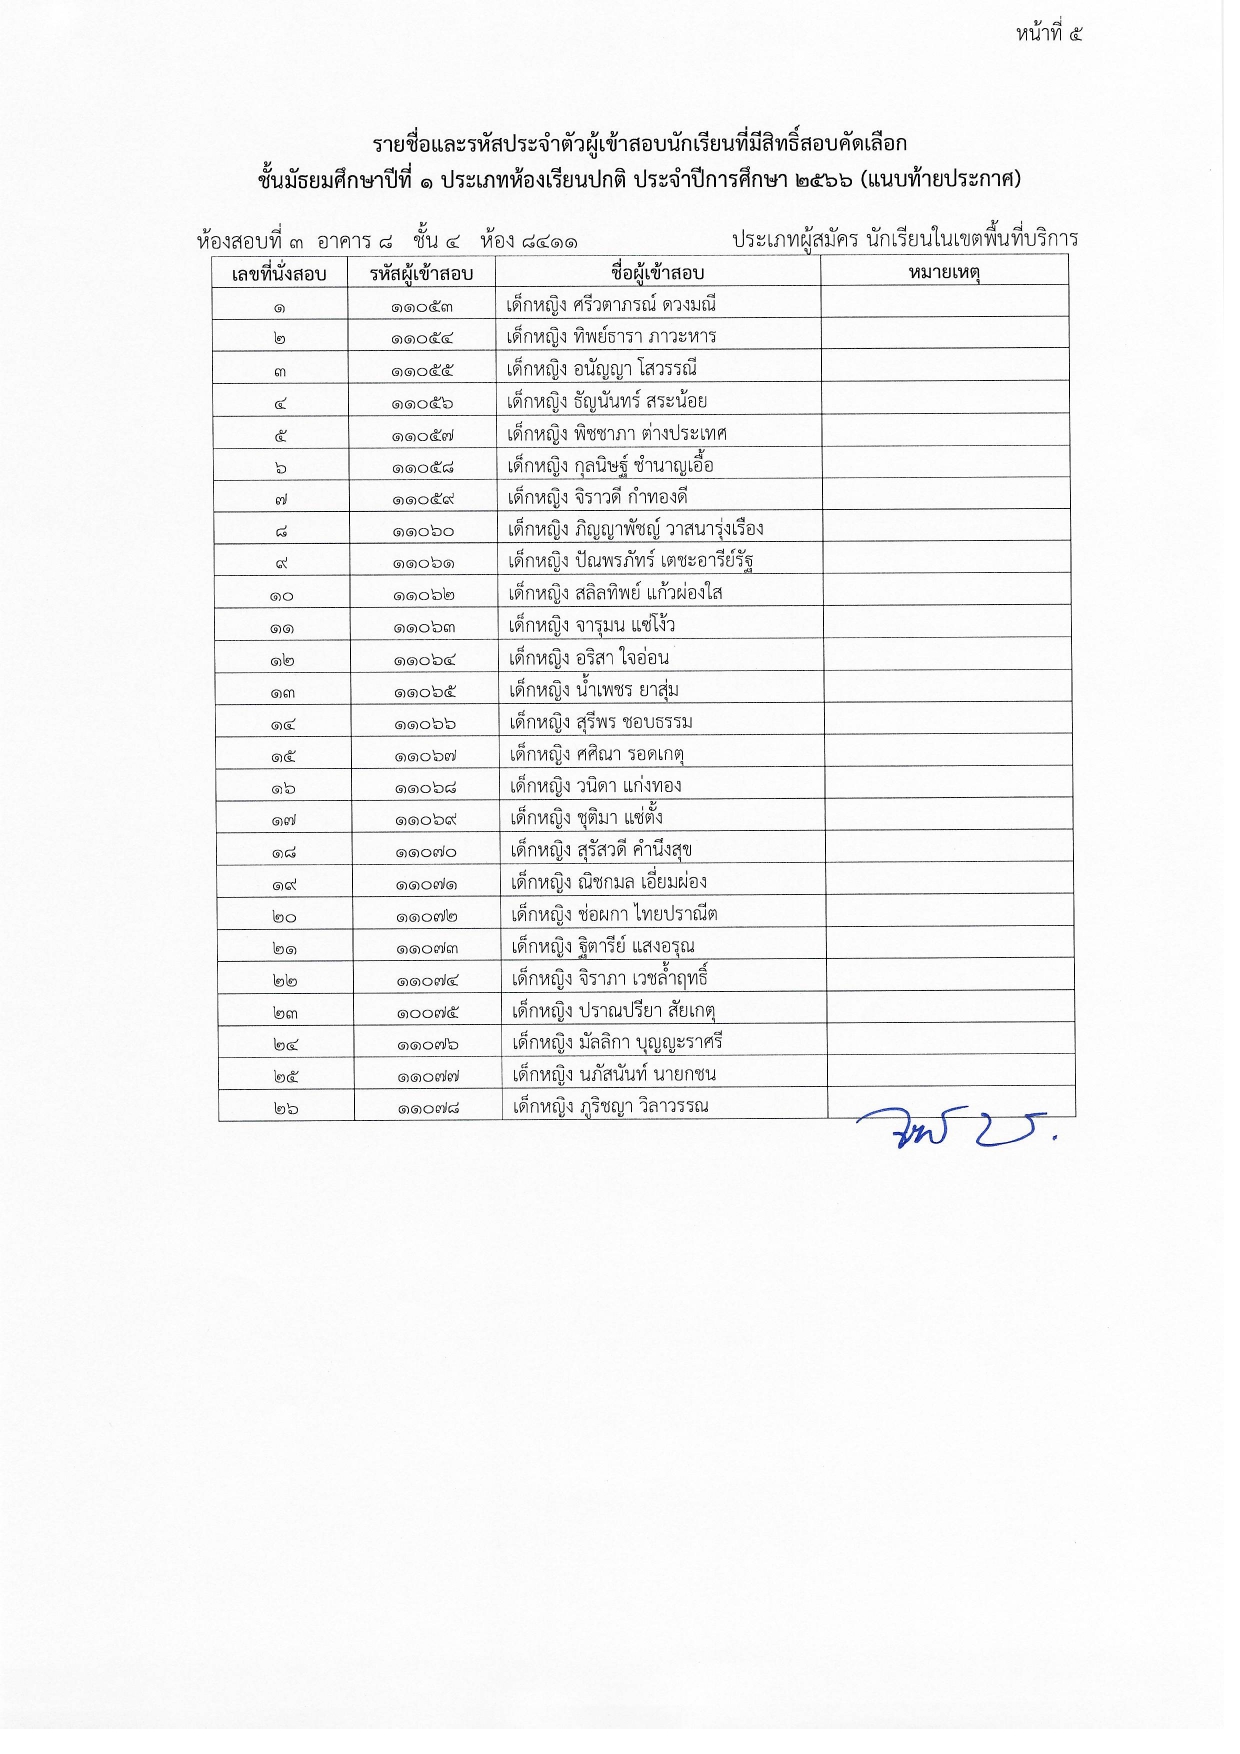 หน้าที่ ๕
รายชื่อและรหัสประจำตัวผู้เข้าสอบนักเรียนที่มีสิทธิ์สอบคัดเลือก
ชั้นมัธยมศึกษาปีที่ ๑ ประเภทห้องเรียนปกติ ประจำปีการศึกษา ๒๕๖๖ (แนบท้ายประกาศ)
ห้องสอบที่ ๓ อาคาร ๘ ชั้น ๔ ห้อง ๘๔๑๑ ประเภทผู้สมัคร นักเรียนในเขตพื้นที่บริการ
เลขที่นั่งสอบ รหัสผู้เข้าสอบ ชื่อผู้เข้าสอบ หมายเหตุ
๑ ๑๑๐๕๓ เด็กหญิง ศรีวตาภรณ์ ดวงมณี
๒ ๑๑๐๕๔ เด็กหญิง ทิพย์ธารา ภาวะหาร
๓ ๑๑๐๕๕ เด็กหญิง อนัญญา โสวรรณี
๔ ๑๑๐๕๖ เด็กหญิง ธัญนันทร์ สระน้อย
๕ ๑๑๐๕๗ เด็กหญิง พิชชาภา ต่างประเทศ
๖ ๑๑๐๕๘ เด็กหญิง กุลนิษฐ์ ชำนาญเอื้อ
๗ ๑๑๐๕๙ เด็กหญิง จิราวดี กำทองดี
๘ ๑๑๐๖๐ เด็กหญิง ภิญญาพัชญ์ วาสนารุ่งเรือง
๙ ๑๑๐๖๑ เด็กหญิง ปัณพรภัทร์ เตชะอารีย์รัฐ
๑๐ ๑๑๐๖๒ เด็กหญิง สลิลทิพย์ แก้วผ่องใส
๑๑ ๑๑๐๖๓ เด็กหญิง จารุมน แซ่โง้ว
๑๒ ๑๑๐๖๔ เด็กหญิง อริสา ใจอ่อน
๑๓ ๑๑๐๖๕ เด็กหญิง น้ำเพชร ยาสุ่ม
๑๔ ๑๑๐๖๖ เด็กหญิง สุรีพร ชอบธรรม
๑๕ ๑๑๐๖๗ เด็กหญิง ศศิณา รอดเกตุ
๑๖ ๑๑๐๖๘ เด็กหญิง วนิดา แก่งทอง
๑๗ ๑๑๐๖๙ เด็กหญิง ชุติมา แซ่ตั้ง
๑๘ ๑๑๐๗๐ เด็กหญิง สุรัสวดี คำนึงสุข
๑๙ ๑๑๐๗๑ เด็กหญิง ณิชกมล เอี่ยมผ่อง
๒๐ ๑๑๐๗๒ เด็กหญิง ช่อผกา ไทยปราณีต
๒๑ ๑๑๐๗๓ เด็กหญิง ฐิตารีย์ แสงอรุณ
๒๒ ๑๑๐๗๔ เด็กหญิง จิราภา เวชล้ำฤทธิ์
๒๓ ๑๐๐๗๕ เด็กหญิง ปราณปรียา สัยเกตุ
๒๔ ๑๑๐๗๖ เด็กหญิง มัลลิกา บุญญะราศรี
๒๕ ๑๑๐๗๗ เด็กหญิง นภัสนันท์ นายกชน
๒๖ ๑๑๐๗๘ เด็กหญิง ภูริชญา วิลาวรรณ